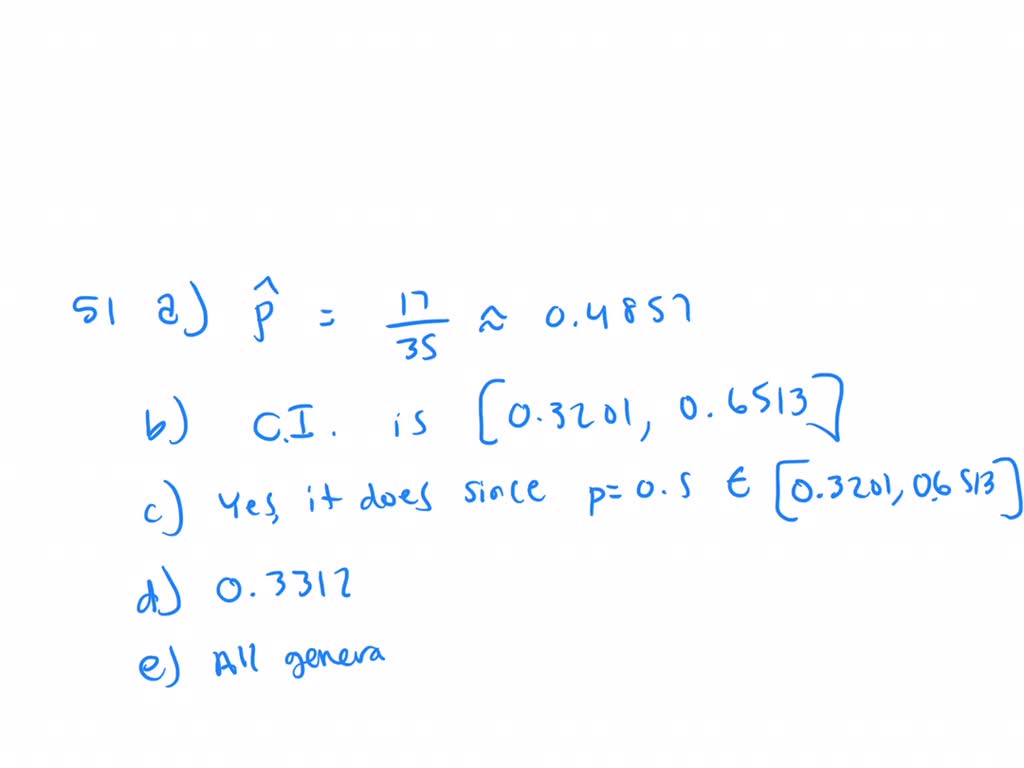 51 a) p̂ = 17/35 ≈ 0.4857
b) C.I. is [0.3201, 0.6513]
c) Yes, it does since p=0.5 ∈ [0.3201, 0.6513]
d) 0.3312
e) All genera